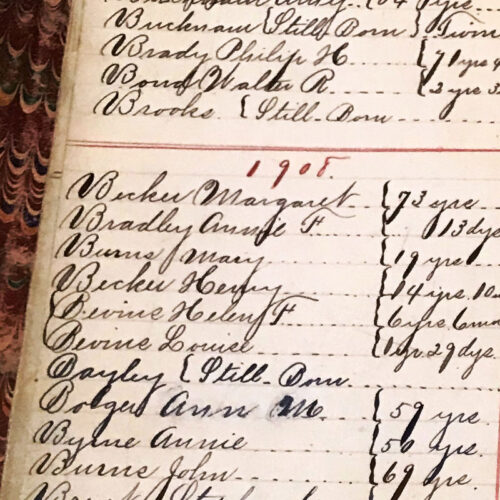 Bucknam {Still-Born} Twin
Brady Philip H. {71 yrs 4
Bond Walter R {2 yrs 3
Brooks {Still-Born
1908.
Becker Margaret {73 yrs
Bradley Annie F {13 dys
Burns Mary {19 yrs
Becker Henry {14 yrs. 10
Bevins Helen F {6 yrs. 6 mos
Bevins Louise {1 yr. 29 dys.
Bayley {Still-Born
Bolger Ann M {59 yrs.
Byrne Annie {50 yrs.
Burns John {69 yrs.